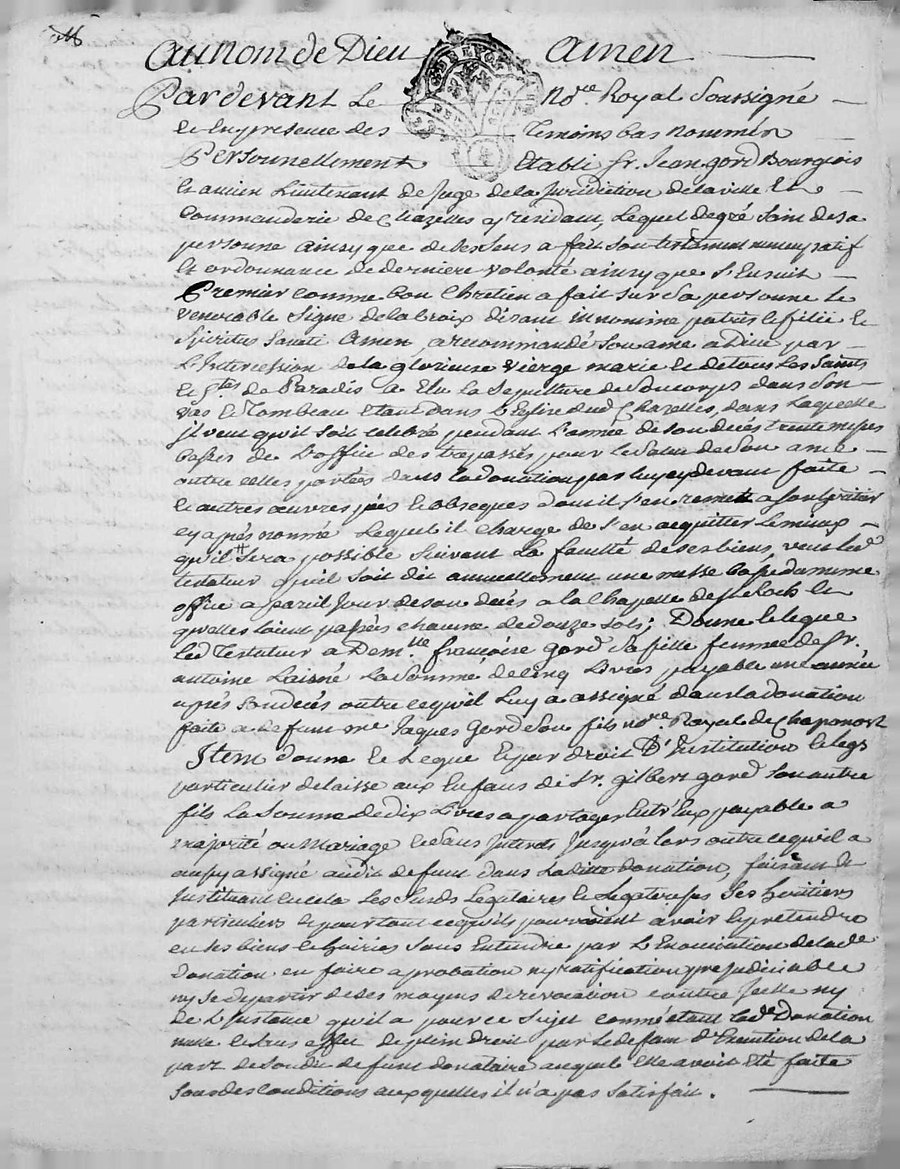 Au nom de Dieu Amen
Pardevant Le Nore. Royal Soussigné
et En presence des Temoins bas nommés
Personnellement Etabli sr. Jean gord Bourgeois
Et ancien Lieutenant de Juge de la Juridiction de la ville Et
Commanderie de Chazelles y residant, Lequel de gré sain de sa
personne ainsy que de ses sens a fait son testament nuncupatif
Et ordonnance de derniere volonté ainsy que s'Ensuit
Premier comme bon Chretien a fait sur sa personne le
venerable signe de la Croix disant in nomine patris et filii et
Spiritus Sancti Amen, a recommandé son ame a Dieu par
L'Intercession de la glorieuse vierge marie et de tous Les Saints
Et Stes de Paradis a Elu la Sepulture de son corps dans son
vas et Tombeau Etant dans L'Eglise dud Chazelles, dans Laquelle
Il veut qu'il soit celebré pendant L'année de son decés trente messes
basses de L'office des trepassés pour le salut de son ame
outre celles portées dans la donation par luy cy devant faite
et autres œuvres pies et obseques dont il s'en remet a son heritier
cy aprés nommé Lequel il charge de s'en acquitter Le mieux
qu'il sera possible suivant La faculté de ses biens, veut led
testateur qu'il soit dit annuellement une messe basse du meme
office a pareil Jour de son decés a la Chapelle de st Roch Et
qu'elles soient payées chacune de douze sols; Donne et legue
led Testateur a Demlle francoise gord sa fille femme de sr.
antoine Laisné La somme de cinq Livres payable une année
aprés son decés outre ce qu'il Luy a assigné dans la donation
faite a defunt me Jaques Gord son fils nore Royal de Chaponost
Item donne Et Legue Et par droit D'Institution et legs
particulier delaisse aux Enfans de sr. gilbert gord son autre
fils La somme de dix Livres a partager Entr'Eux payable a
majorité ou Mariage et sans Interets Jusqu'a lors outre ce qu'il a
aussy assigné audit defunt dans Laditte donation, faisant Et
Instituant En cela Les susds Legataires et Legateresses Ses heritiers
particuliers et pour tout ce qu'ils pourroient avoir et pretendre
en ses biens et hoiries sans Entendre par L'Enonciation de lade
Donation en faire aprobation ny ratification prejudiciable
ny se departir de ses moyens de revocation contre Icelle ny
de L'Instance qu'il a pour ce sujet comme étant lade Donation
nulle et sans effet de plein droit par le defaut d'Execution de la
part de son dit defunt donataire auquel Elle avoit Eté faite
sous des conditions auxquelles il n'a pas satisfait.